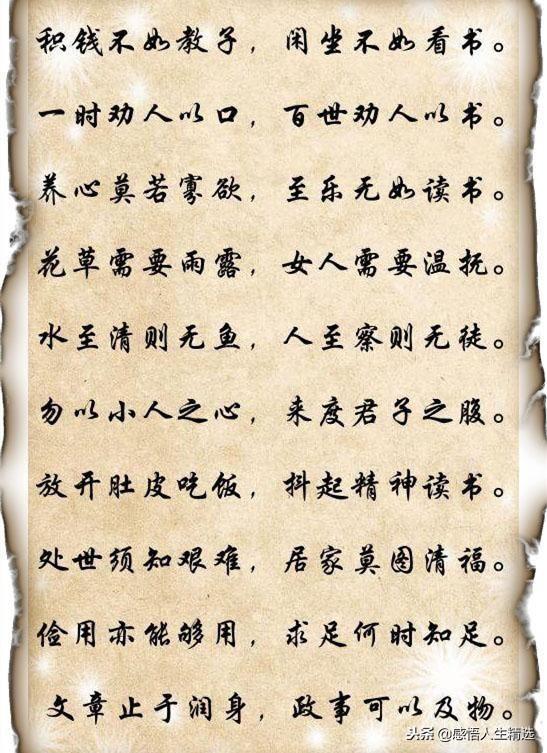 积钱不如教子，闲坐不如看书。
一时劝人以口，百世劝人以书。
养心莫若寡欲，至乐无如读书。
花草需要雨露，女人需要温抚。
水至清则无鱼，人至察则无徒。
勿以小人之心，来度君子之腹。
放开肚皮吃饭，抖起精神读书。
处世须知艰难，居家莫图清福。
俭用亦能够用，求足何时知足。
文章止于润身，政事可以及物。
头条@感悟人生精选